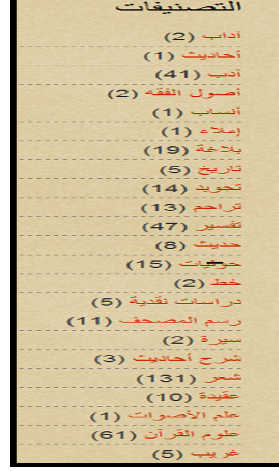 التصنيفات
آداب (2)
أحاديث (1)
أدب (41)
أصول الفقه (2)
أنساب (1)
إملاء (1)
بلاغة (19)
تاريخ (5)
تجويد (14)
تراجم (13)
تفسير (47)
حديث (8)
(15)
خط (2)
دراسات نقدية (5)
رسم المصحف (11)
سيرة (2)
شرح أحاديث (3)
شعر (131)
عقيدة (10)
علم الأصوات (1)
علوم القرآن (61)
غريب (5)